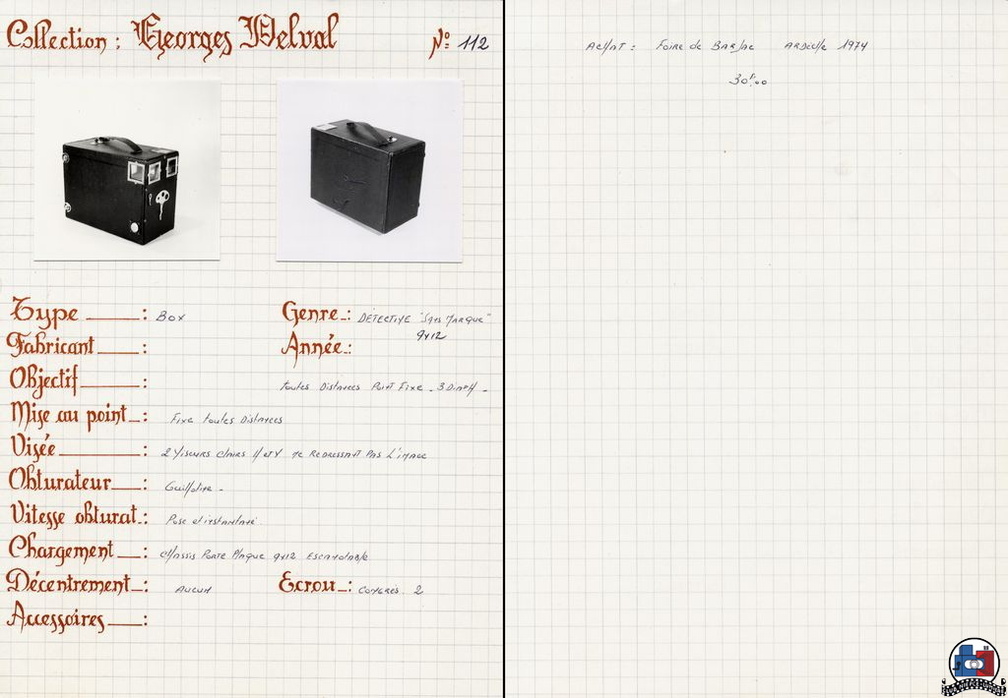 Collection : Georges Delval
N° 112
Type : Box
Genre : DETECTIVE "Sans Marque"
9x12
Fabricant :
Année :
Objectif : toutes Distances Point Fixe - 3 D
Mise au point : Fixe toutes Distances
Visée : 2 Viseurs clairs H et V ne Redressant Pas L'image
Obturateur : Guillotine -
Vitesse obturat. : Pose et instantané
Chargement : châssis Porte Plaque 9x12 Escamotable
Décentrement : Aucun
Ecrou : Congrès 2
Accessoires :
Achat : Foire de Barjac ARDèche 1974
30F,00